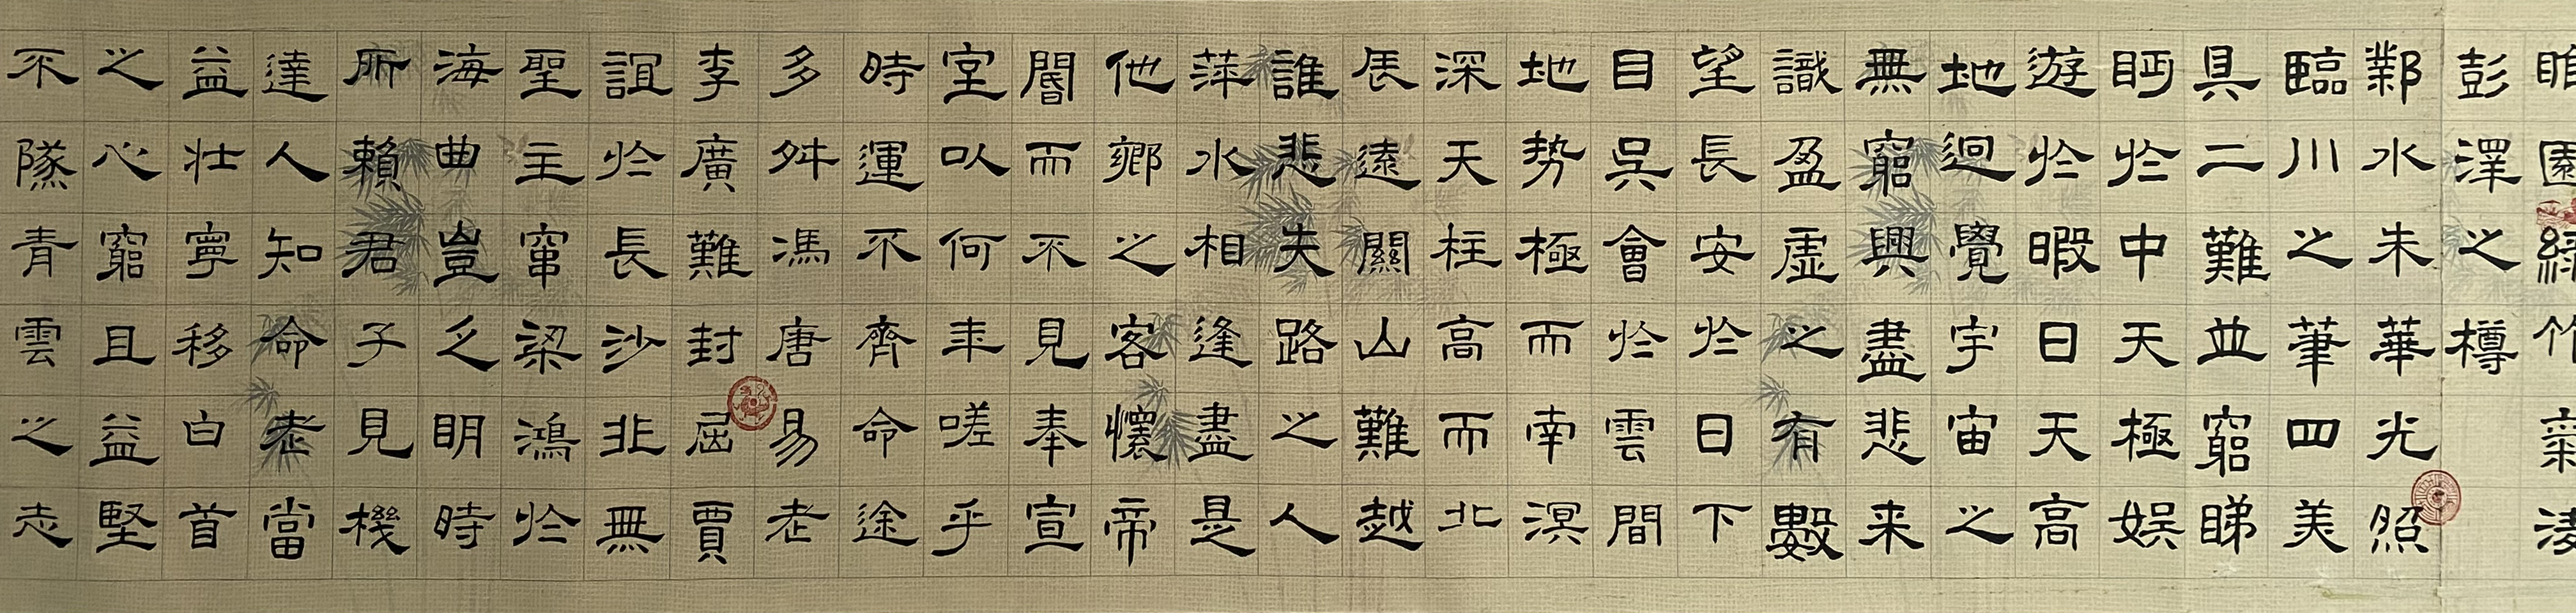 睢園綠竹氣凌
彭澤之樽
鄴水朱華光照
臨川之筆四美
具二難並窮睇
眄於中天極娛
遊於暇日天高
地迥覺宇宙之
無窮興盡悲来
識盈虛之有數
望長安於日下
目吳會於雲間
地势極而南溟
深天柱高而北
辰遠關山難越
誰悲失路之人
萍水相逢盡是
他鄉之客懷帝
閽而不見奉宣
室以何年嗟乎
時運不齊命途
多舛馮唐易老
李廣難封屈賈
誼於長沙非無
聖主竄梁鴻於
海曲豈乏明時
所賴君子見機
達人知命老當
益壯寧移白首
之心窮且益堅
不隊青雲之志